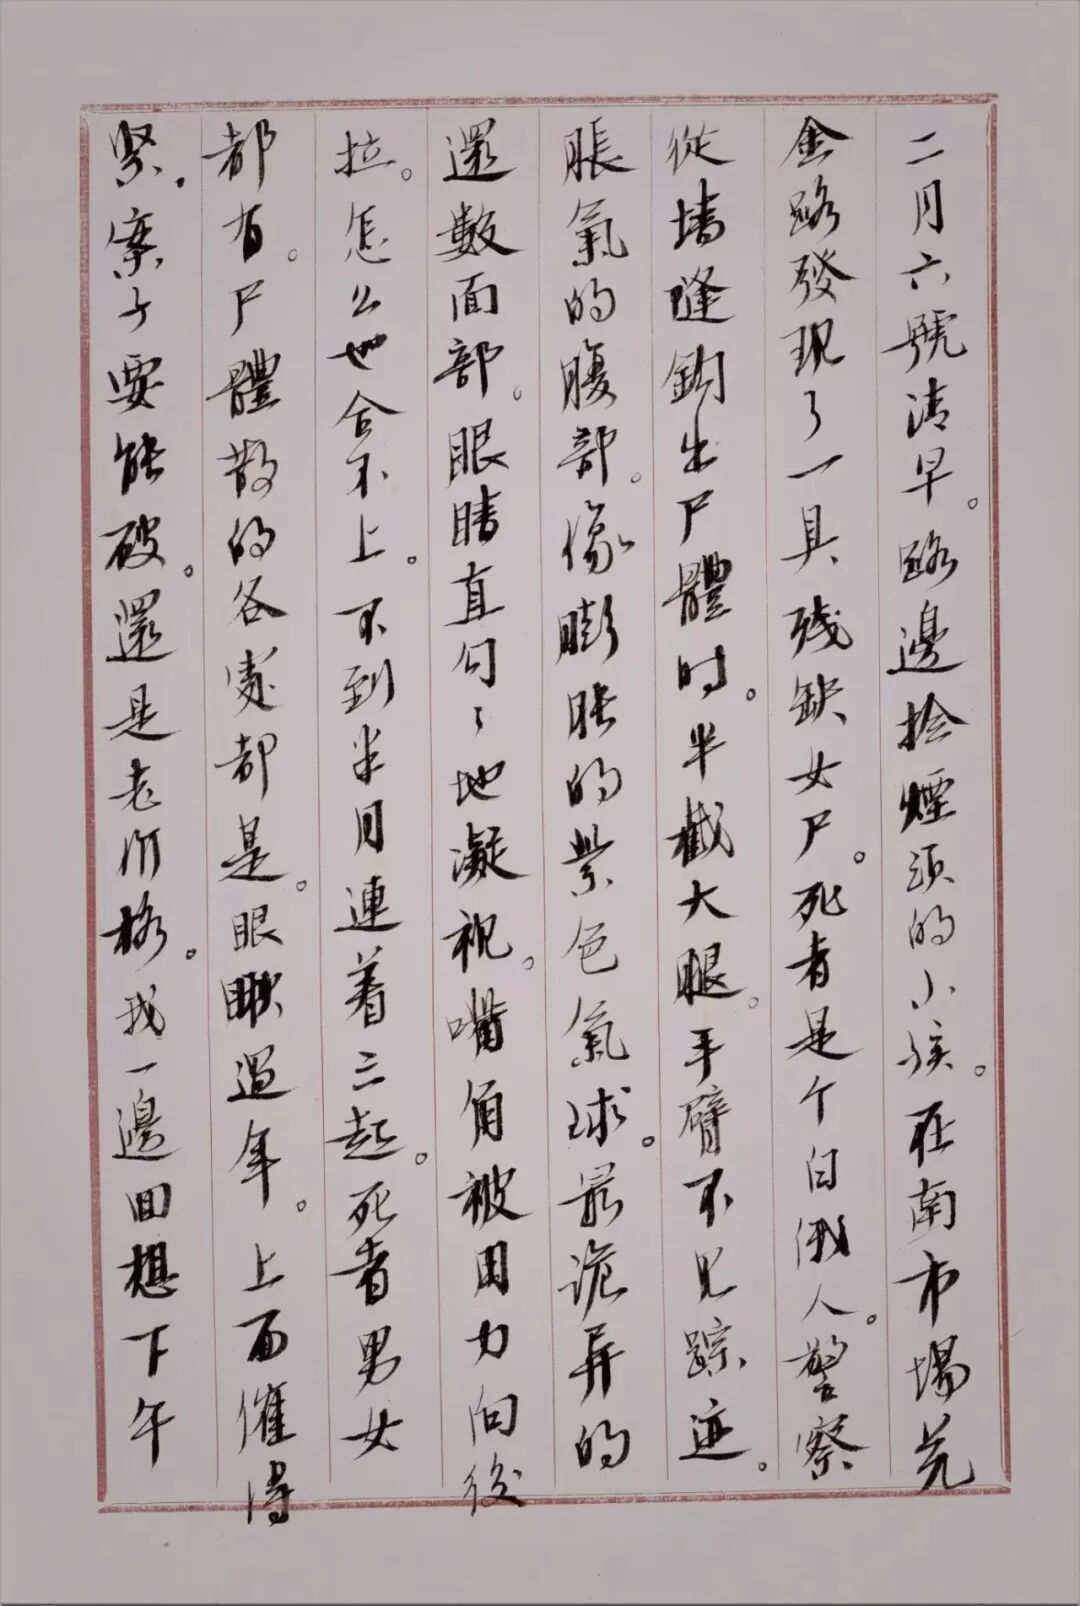 二月六號清早。路邊拾煙頭的小孩。在南市場兑
金路發現了一具残缺女尸。死者是个白俄人。警察
從墙縫鈎出尸體時。半截大腿。手臂不见踪迹。
脹氣的腹部。像膨胀的紫色氣球。最詭异的
還數面部。眼睛直勾〻地凝視。嘴角被用力向後
拉。怎么也合不上。不到半月連着三起。死者男女
都有。尸體散的各處都是。眼瞅過年。上面催得
紧。案子要能破。還是老价格。我一邊回想下午